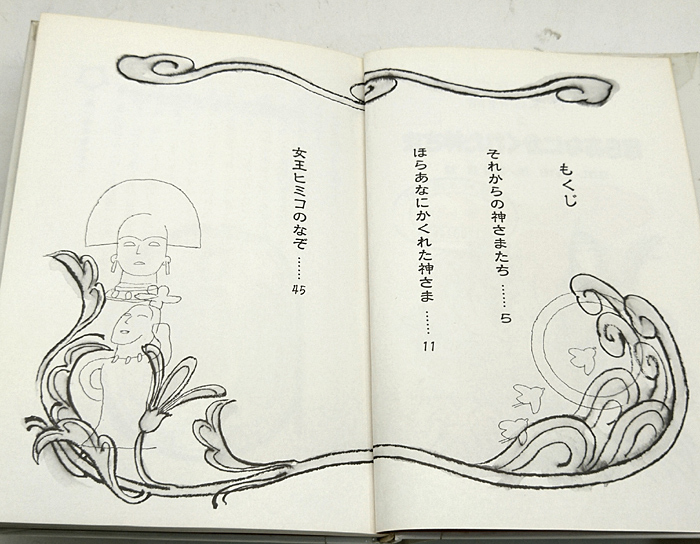 もくじ
それからの神さまたち……5
ほらあなにかくれた神さま……11
女王ヒミコのなぞ……45